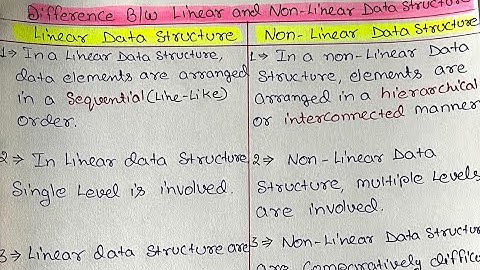 Difference B/w Linear and Non-Linear Data Structure
Linear Data Structure
1→ In a Linear Data Structure,
data elements are arranged
in a Sequential (Line-Like)
order.
2→ In Linear data Structure
Single Level is involved.
3→ Linear data Structure are
Non-Linear Data Structure
1→ In a non-Linear Data
Structure, elements are
arranged in a hierarchical
or interconnected manner
2→ Non-Linear Data
Structure, multiple Levels
are involved.
3→ Non-Linear Data Structure
are comparatively